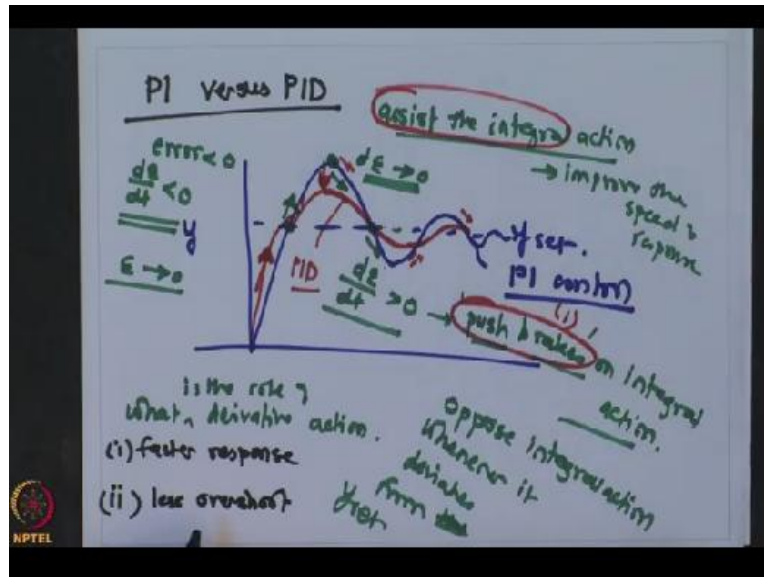 PI versus PID
assist the integral action
→ improve the
speed of
response
error < 0
de/dt < 0
y
ε → 0
dε → 0
y set.
PID
PI control
(i)
de/dt > 0 → push brakes on integral
action.
is the role of
what ^ derivative action.
(i) faster response
(ii) less overshoot
oppose integral action
whenever it
deviates
from
y set
NPTEL